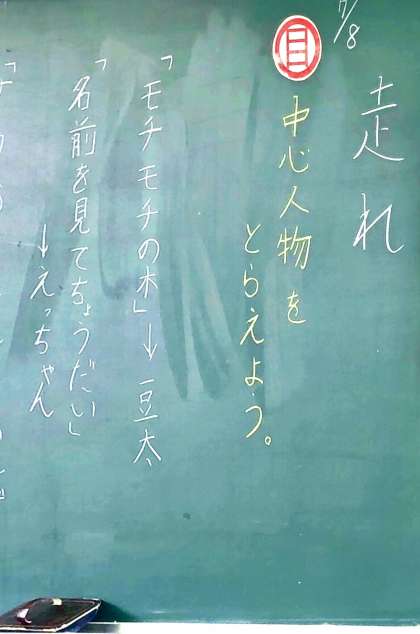 7/8
走れ
目
中心人物を
とらえよう。
「モチモチの木」→豆太
「名前を見てちょうだい」
→えっちゃん